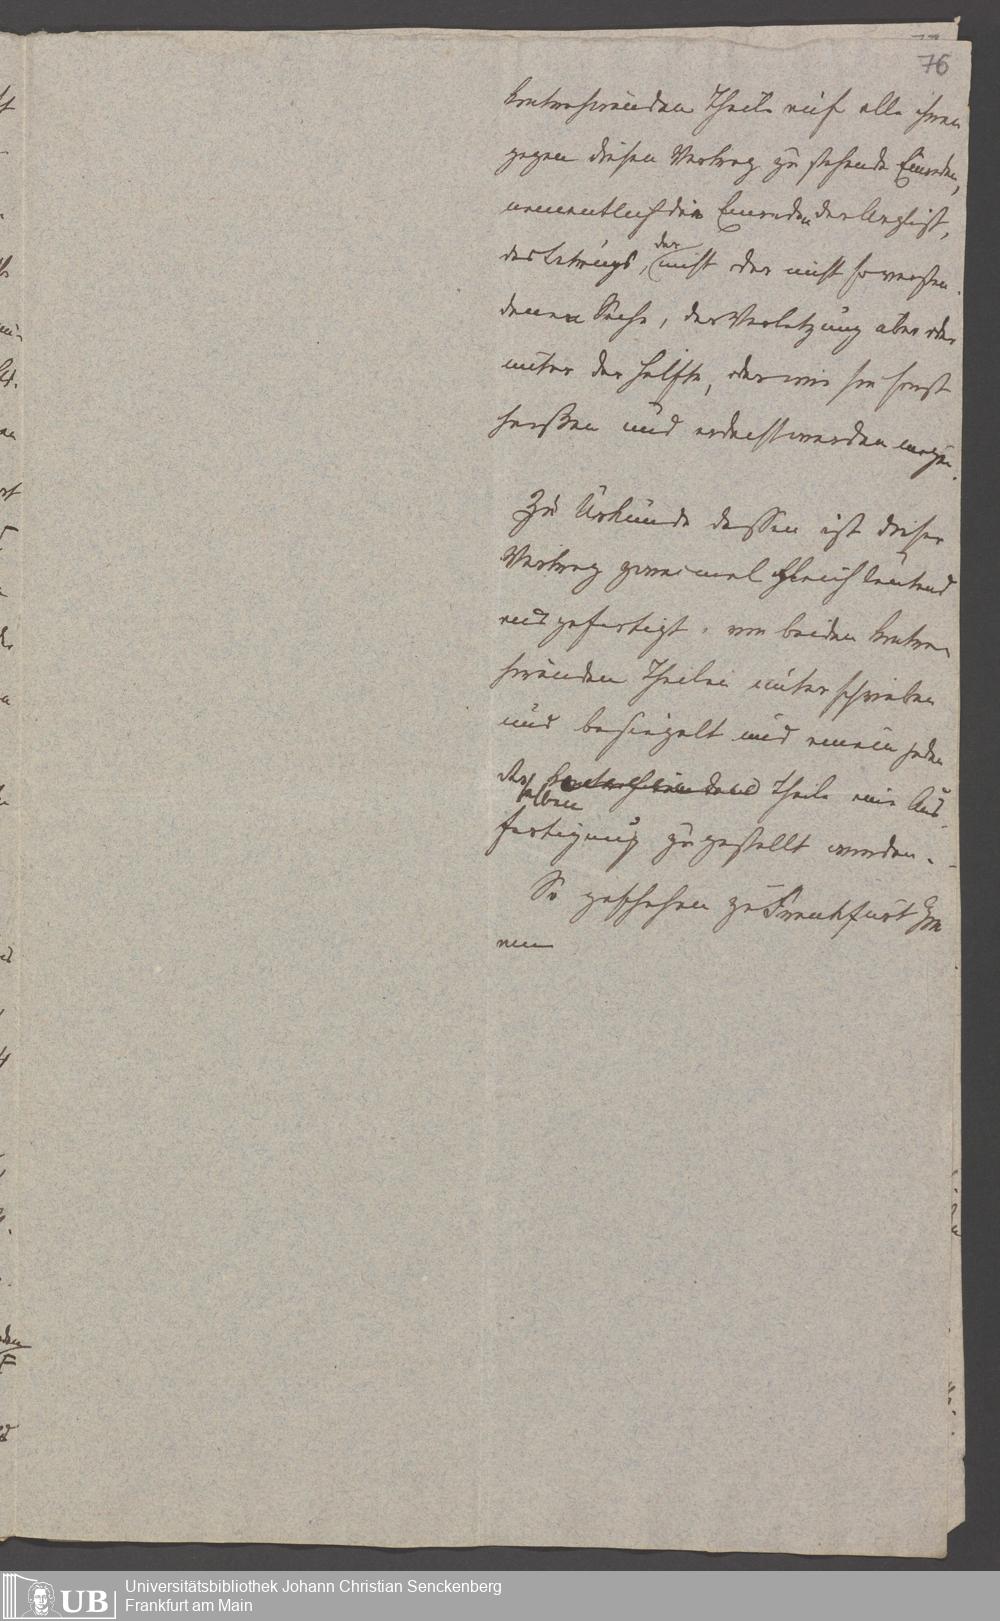 76
kontrahirenden Theile auf alle ihnen
gegen diesen Vertrag zu stehende Einreden,
namentlich die Einreden der Arglist,
des Betrugs, der nicht oder nicht so verstan-
denen Sache, der Verletzung über oder
unter der Hälfte, oder wie sie sonst
heißen und erdacht werden mögen.
Zu Urkunde dessen ist dieser
Vertrag zweimal gleich lautend
ausgefertigt, von beiden kontra-
hirenden Theilen unterschrieben
und besiegelt und einem jeden
der kontrahirenden Theile eine Aus-
selben
fertigung zugestellt worden.
So geschehen zu Frankfurt am
Universitätsbibliothek Johann Christian Senckenberg
UB Frankfurt am Main